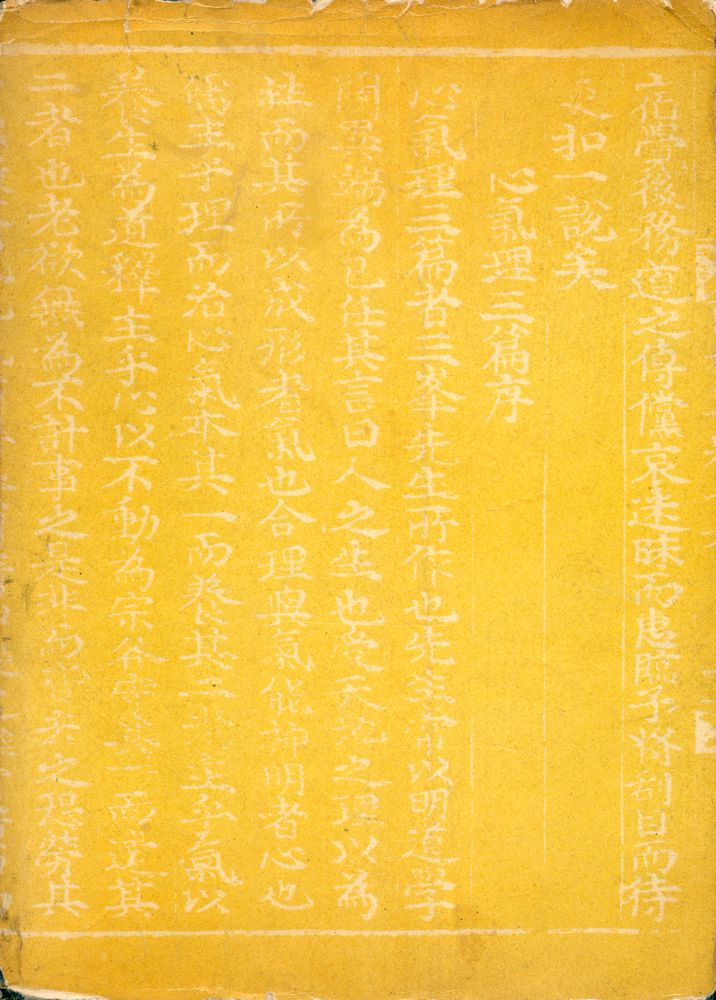 高學後務道之傳儻哀迷昧而惠臨予將刮目而待
更扣一說矣
心氣理三篇序
心氣理三篇者三峯先生所作也先生常以明道學
闢異端為己任其言曰人之生也受天地之理以為
性而其所以成形者氣也合理與氣能神明者心也
儒主乎理而治心氣本其一而養其二老主乎氣以
養生為道釋主乎心以不動為宗各守其一而遺其
二者也老欲無為不計事之是非而皆去之恐勞其